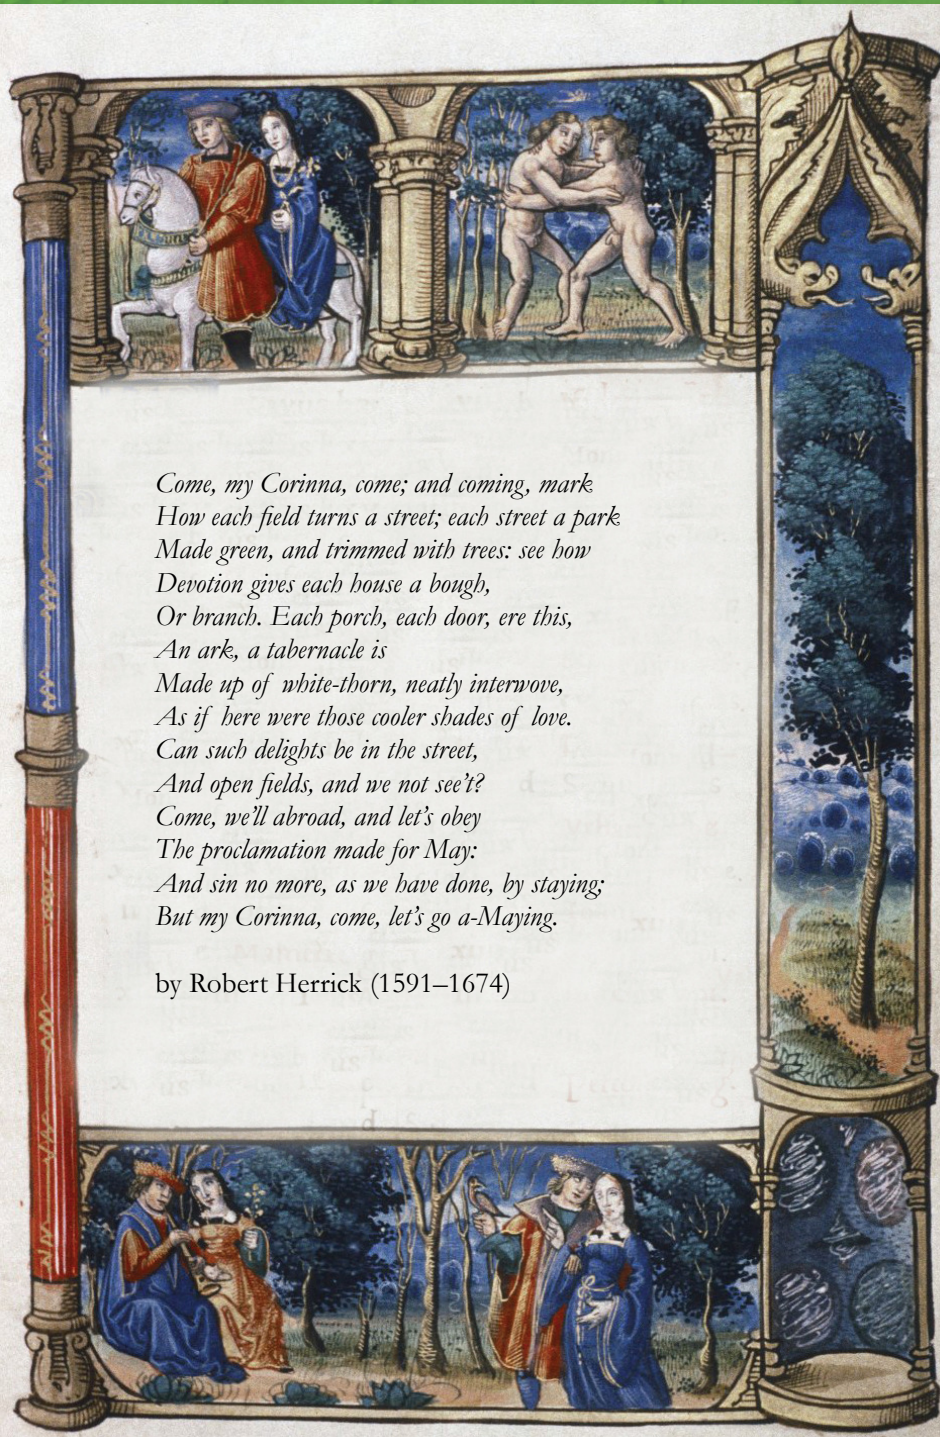 Come, my Corinna, come; and coming, mark
How each field turns a street; each street a park
Made green, and trimmed with trees: see how
Devotion gives each house a bough,
Or branch. Each porch, each door, ere this,
An ark, a tabernacle is
Made up of white-thorn, neatly interwove,
As if here were those cooler shades of love.
Can such delights be in the street,
And open fields, and we not see’t?
Come, we’ll abroad, and let’s obey
The proclamation made for May:
And sin no more, as we have done, by staying;
But my Corinna, come, let’s go a-Maying.
by Robert Herrick (1591–1674)